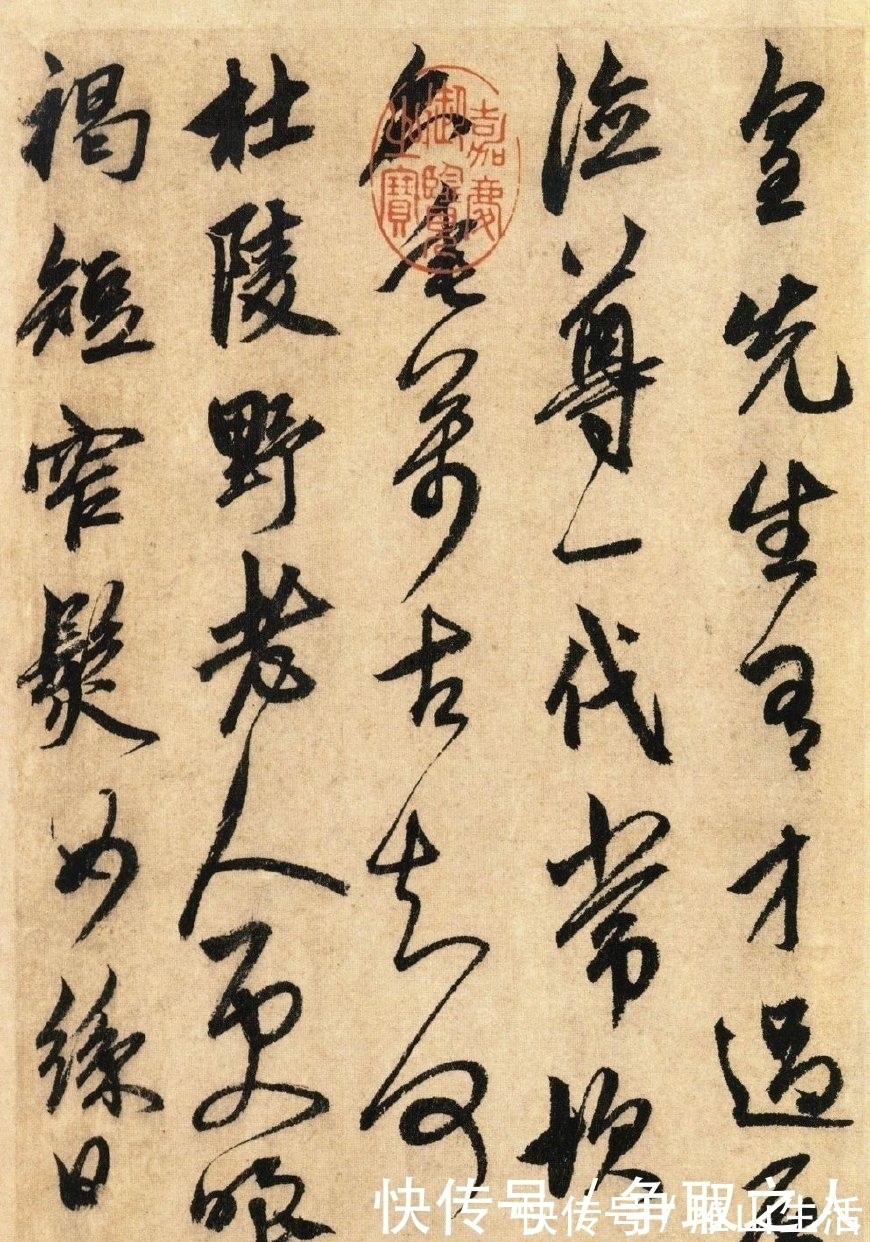 皇先生有才過
德尊一代常坎
名垂萬古知何
杜陵野老人更
褐短窄鬢如絲日
嘉慶御覽之寶
快传号/争取之人
快传号
生活